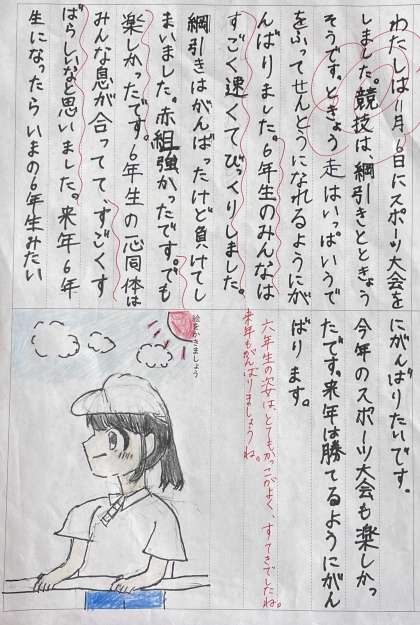 わたしは11月6日にスポーツ大会を
しました。競技は綱引きとときょう
そうです。ときょう走はいっぱいうで
をふってせんとうになれるようにが
んばりました。6年生のみんなは
すごく速くてびっくりしました。
綱引きはがんばったけど負けてし
まいました。赤組強かったです。でも
楽しかったです。6年生の応同体は
みんな息が合ってて、すごくす
ばらしいなと思いました。来年6年
生になったらいまの6年生みたい
にがんばりたいです。
今年のスポーツ大会も楽しかっ
たです。来年は勝てるようにがん
ばります。
六年生の姿は、とてもかっこがよく、すてきでしたね。
来年もがんばりましょうね。
絵をかきましょう